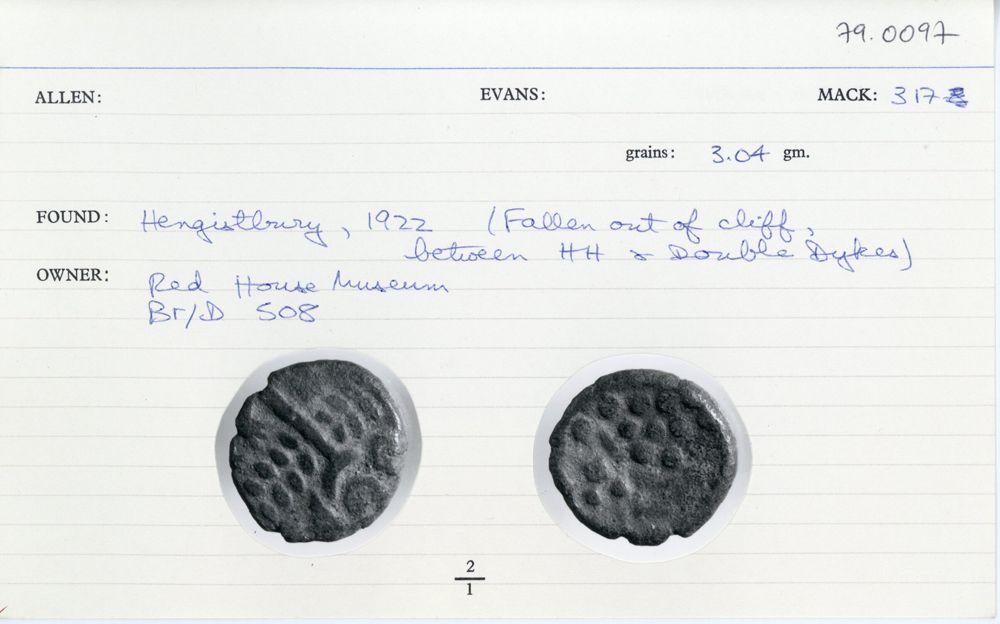 79.0097
ALLEN: EVANS: MACK: 317
grains: 3.04 gm.
FOUND: Hengistbury, 1922 (Fallen out of cliff,
between HH & Double Dykes)
OWNER: Red House Museum
Br/D 508
2
1